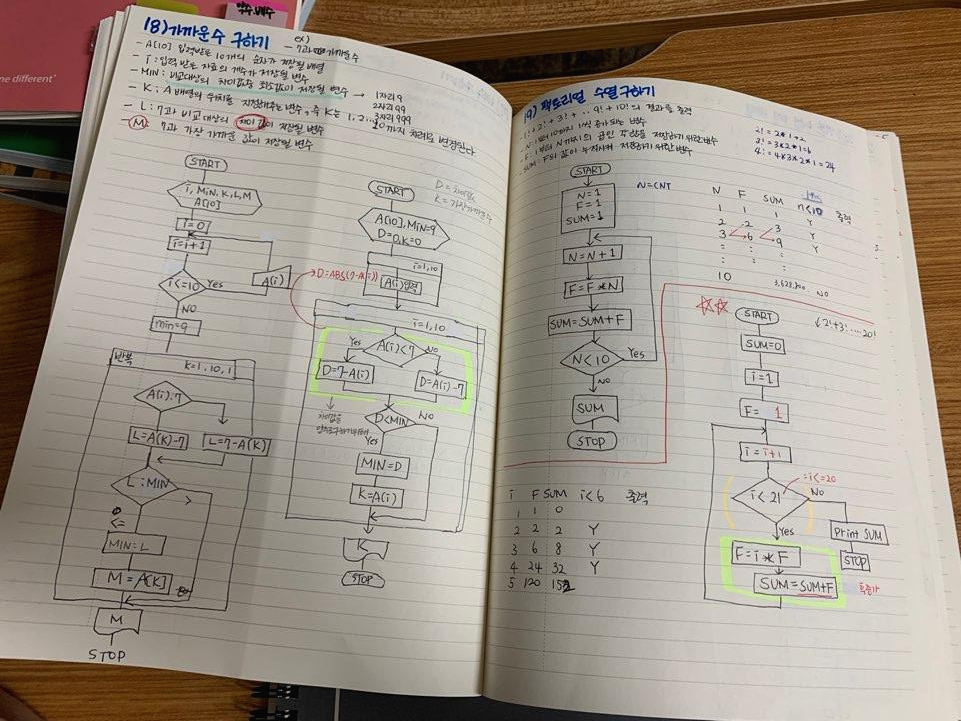 me different'
약수, 배수
18) 가까운수 구하기
ex)
- 7과 가까운수
- A[10] 입력받는 10개의 숫자가 저장될 배열
- i : 입력 받은 자료의 개수가 저장될 변수
- MIN : 비교대상의 차이값중 최소값이 저장될 변수 → 1자리 9
2자리 99
3자리 999
- K : A 배열의 위치를 지정해주는 변수, 즉 K는 1, 2... 10까지 차례로 변경된다
- L : 7과 비교대상의 차이 값이 저장될 변수
- M : 7과 가장 가까운 값이 저장될 변수
START
i, MiN, K, L, M
A[10]
i=0
i=i+1
i<=10
Yes
A(i)
NO
min=9
반복
K=1, 10, 1
A(i):7
L=A(K)-7
L=7-A(K)
L:MIN
>
<=
MIN=L
M=A[K]
M
STOP
START
D=차이값
K=가장가까운수
A[10], MIN=9
D=0, K=0
i=1,10
A(i)입력
D=ABS(7-A(i))
i=1,10
A(i)<7
Yes
No
D=7-A(i)
D=A(i)-7
차이값을
D<MIN
No
Yes
MIN=D
K=A(i)
K
STOP
19) 팩토리얼 수열구하기
- 1!+2!+3!+ ... 9!+10!의 결과를 출력
- N : 1부터 10까지 1씩 증가되는 변수
- F : 1부터 N까지의 곱인 값을 저장하기 위한 변수
- SUM : F의 값이 누적시켜 저장하기 위한 변수
2! = 2*1=2
3! = 3*2*1=6
4! = 4*3*2*1=24
START
N=1
F=1
SUM=1
N=CNT
N=N+1
F=F*N
SUM=SUM+F
N<10
Yes
No
SUM
STOP
N F SUM n<10 출력
1 1 1 Y
2 2 3 Y
3 6 9 Y
: : : :
: : :
10 3,628,800 NO
☆☆
START
2!+3!.....20!
SUM=0
i=1
F= 1
i=i+1
i<21
=i<=20
No
Yes
Print SUM
STOP
F=i*F
SUM=SUM+F
i F SUM i<6 출력
1 1 0
2 2 2 Y
3 6 8 Y
4 24 32 Y
5 120 152